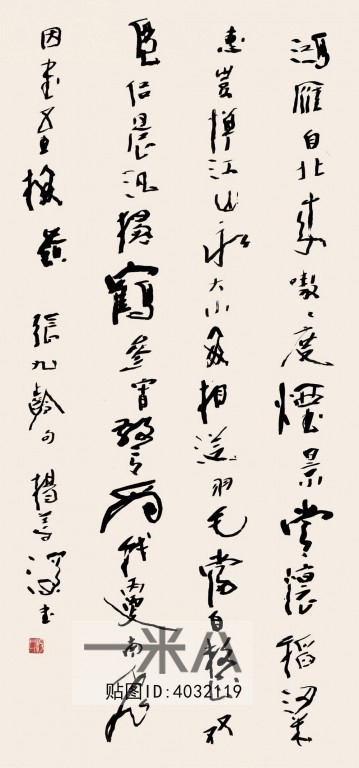 鴻雁自北来嗷〻度煙景常懷稻粱
惠豈憚江山永大小每相從羽毛當自整双
鳧侣晨泛獨鶴參宵警為我更南飛
因書至梅嶺 張九齡句 楊善深書
一米八
贴图ID:4032119